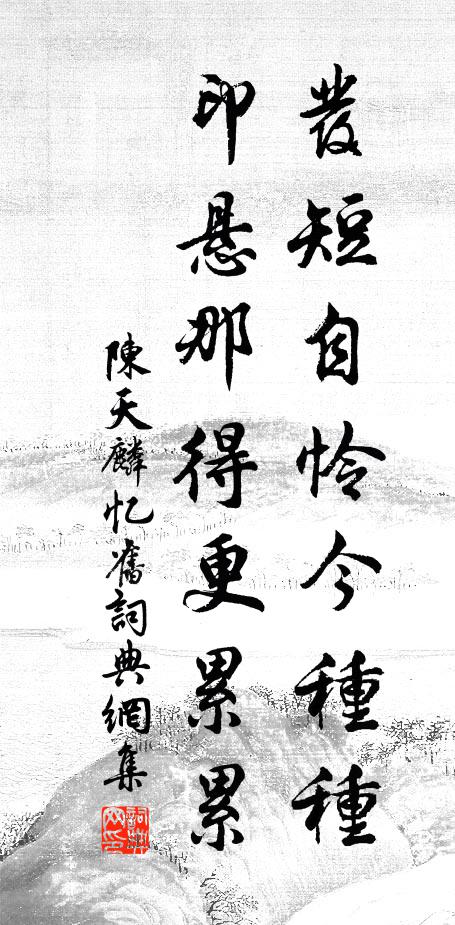 發短自怜今種種
印悬那得更累累
陳天麟忆舊詞典網集